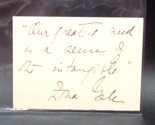 "Our greatest need
is a sense of
the intangible."
Zona Gale